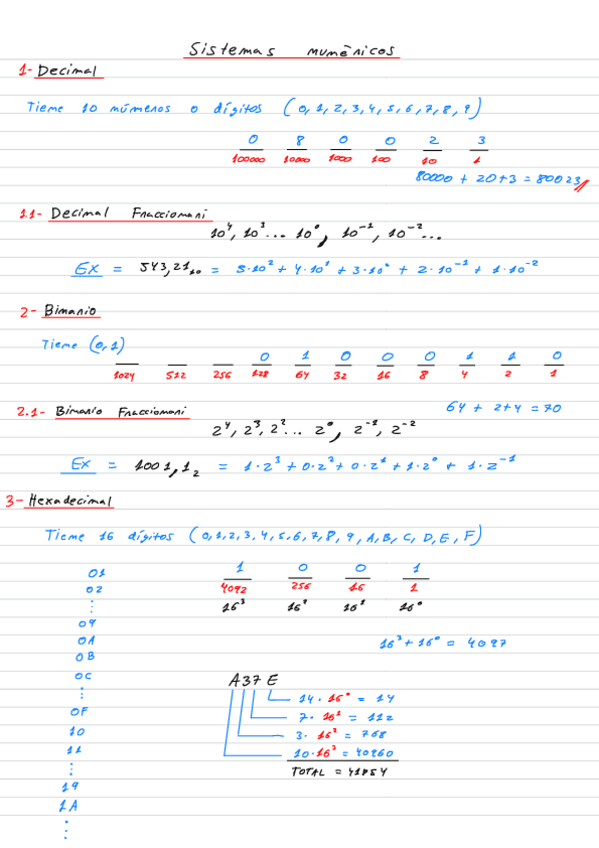 Sistemas numéricos
1- Decimal
Tiene 10 números o dígitos (0,1,2,3,4,5,6,7,8,9)
0 8 0 0 2 3
100000 10000 1000 100 10 1
80000 + 20+3 = 80023
1.1- Decimal Fraccionari
10⁴, 10³... 10⁰, 10⁻¹, 10⁻²...
EX = 543,21₁₀ = 5·10² + 4·10¹ + 3·10⁰ + 2·10⁻¹ + 1·10⁻²
2- Binario
Tiene (0,1)
0 1 0 0 0 1 1 0
1024 512 256 128 64 32 16 8 4 2 1
64 + 2+4 = 70
2.1- Binario Fraccionari
2⁴, 2³, 2²... 2⁰, 2⁻¹, 2⁻²
EX = 1001,1₂ = 1·2³ + 0·2² + 0·2¹ + 1·2⁰ + 1·2⁻¹
3- Hexadecimal
Tiene 16 dígitos (0,1,2,3,4,5,6,7,8,9,A,B,C,D,E,F)
01
02
⋮
09
0A
0B
0C
⋮
0F
10
11
⋮
19
1A
⋮
1 0 0 1
4092 256 16 1
16³ 16² 16¹ 16⁰
16³ + 16⁰ = 4097
A37E
14 · 16⁰ = 14
7 · 16¹ = 112
3 · 16² = 768
10 · 16³ = 40960
TOTAL = 41854